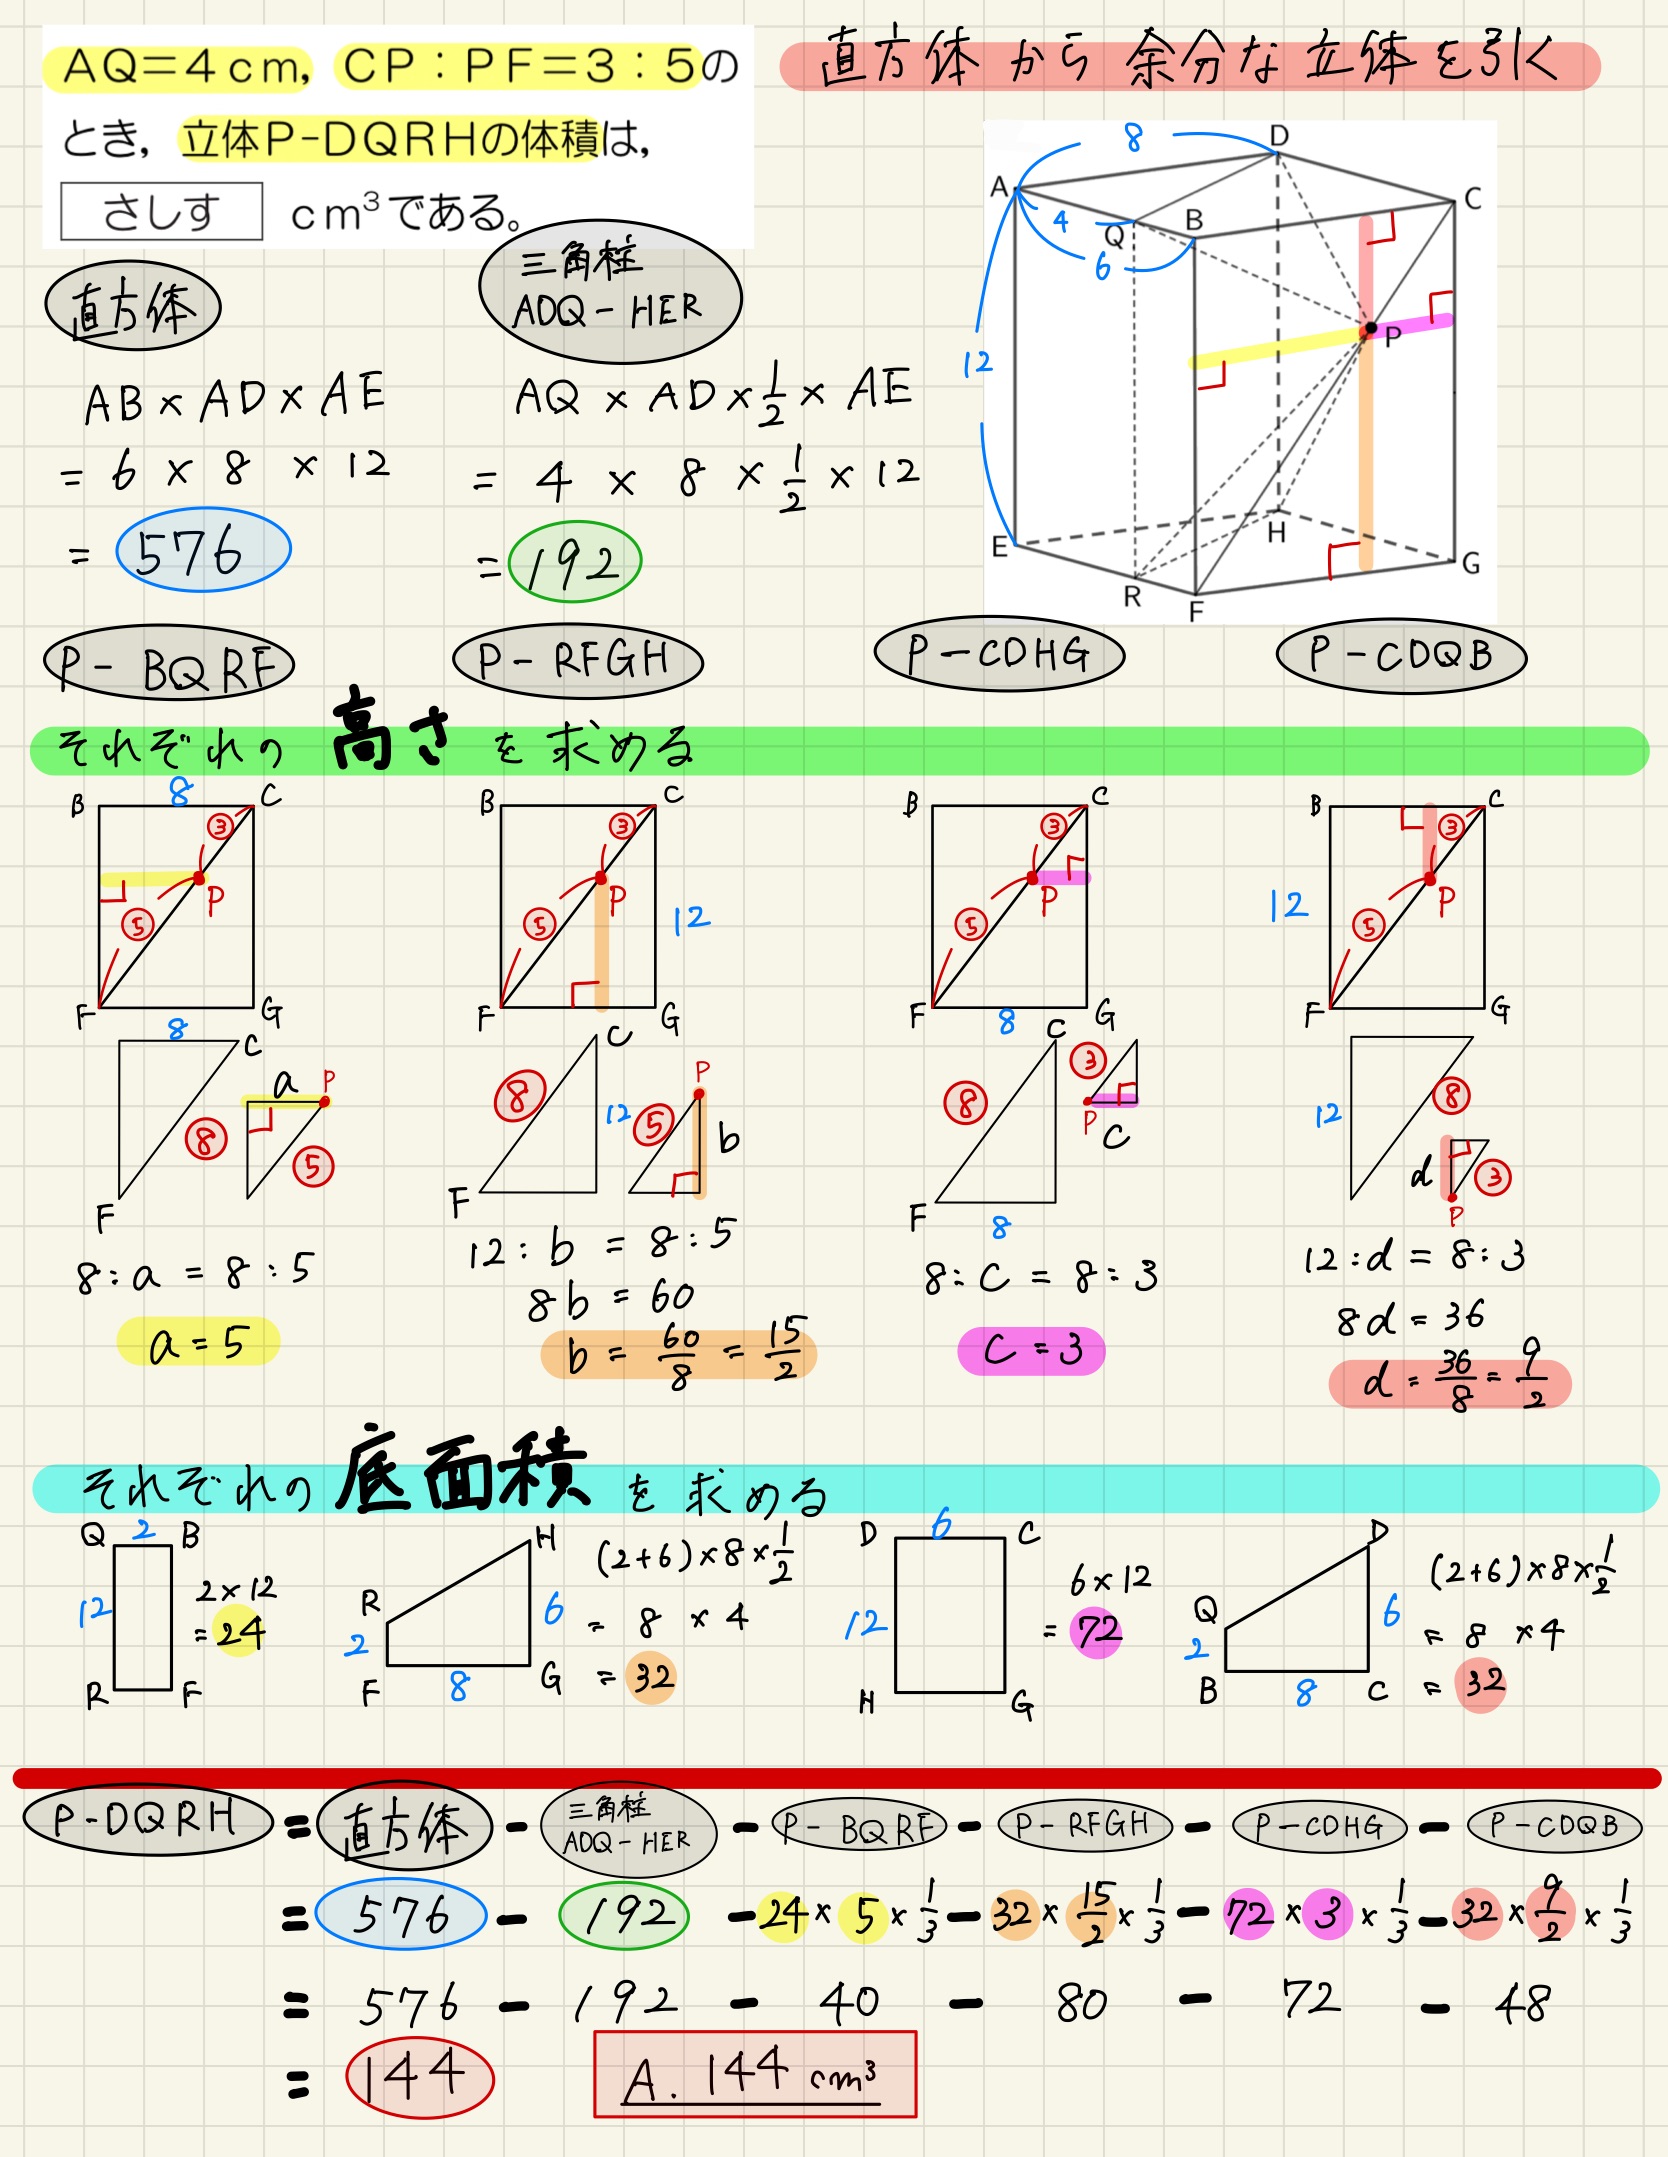 AQ=4cm, CP:PF=3:5の
とき, 立体P-DQRHの体積は,
さしす cm³である。
直方体から余分な立体を引く
8 D
A C
4 B
Q
6
P
12
E H G
R F
直方体
AB×AD×AE
= 6 × 8 × 12
= 576
三角柱
ADQ-HER
AQ × AD × 1/2 × AE
= 4 × 8 × 1/2 × 12
= 192
P-BQRF P-RFGH P-CDHG P-CDQB
それぞれの高さを求める
B 8 C
③
P
⑤
F G
8 C
a P
⑧ ⑤
F
8:a = 8:5
a = 5
B C
③
P 12
⑤
F G
C
⑧ 12 P
⑤ b
F
12:b = 8:5
8b = 60
b = 60/8 = 15/2
B C
③
P
⑤
F G
8 C
③
⑧ P C
F 8
8:C = 8:3
C = 3
B C
③
12 P
⑤
F G
12 ⑧
d ③
P
12:d = 8:3
8d = 36
d = 36/8 = 9/2
それぞれの底面積を求める
Q 2 B
12
R F
2×12
=24
H
R 6
2
F 8 G
(2+6)×8×1/2
= 8 × 4
= 32
D 6 C
12
H G
6×12
= 72
D
Q 6
2
B 8 C
(2+6)×8×1/2
= 8 ×4
= 32
P-DQRH = 直方体 - 三角柱 ADQ-HER - P-BQRF - P-RFGH - P-CDHG - P-CDQB
= 576 - 192 - 24 × 5 × 1/3 - 32 × 15/2 × 1/3 - 72 × 3 × 1/3 - 32 × 9/2 × 1/3
= 576 - 192 - 40 - 80 - 72 - 48
= 144
A. 144 cm³